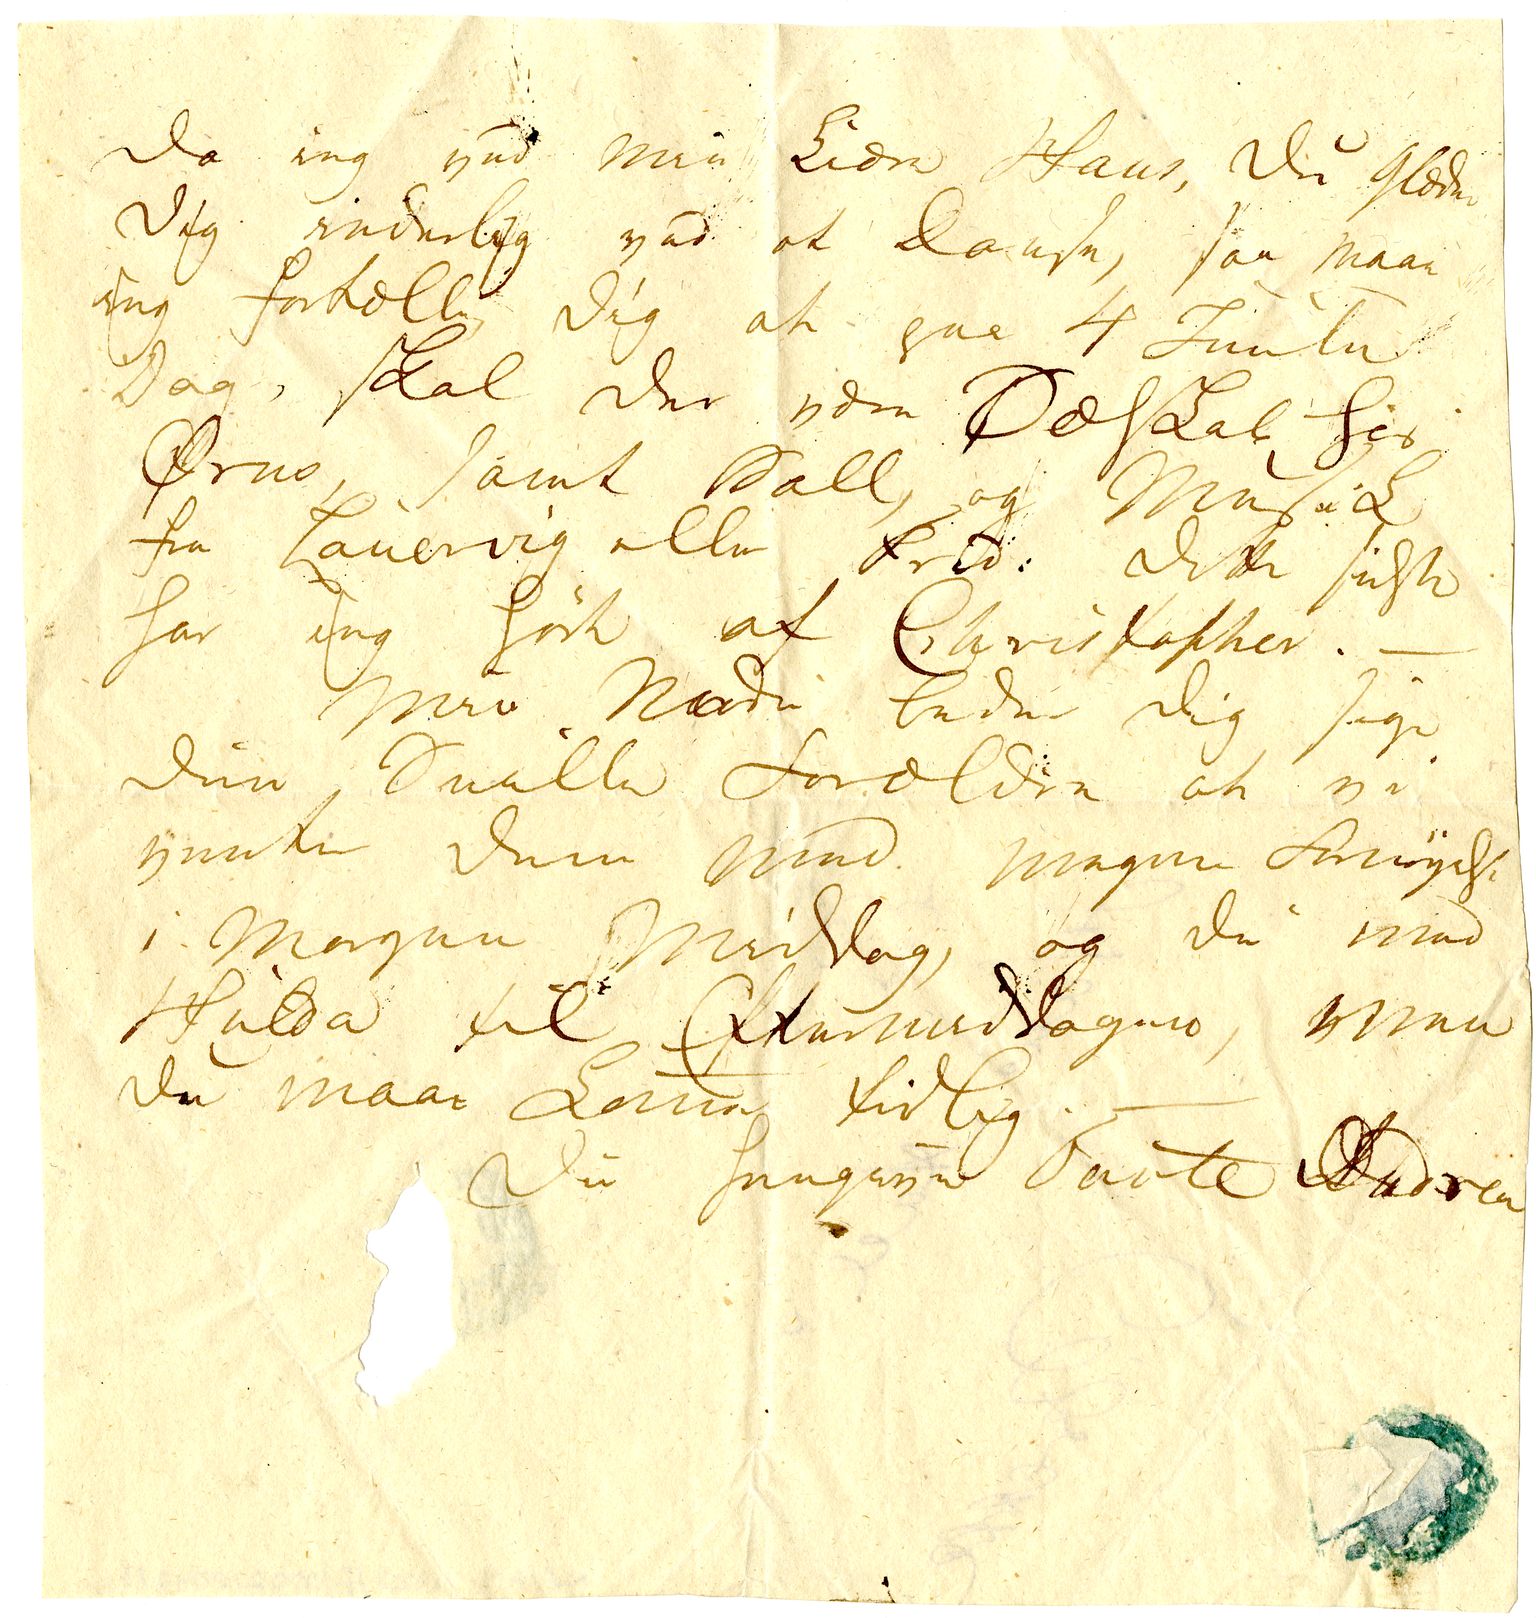 Da ieg veed min kiære Hans, Du glæder
Dig inderlig ved at Dandse, saa maae
ieg fortælle Dig at paa 4 Juule
Dag, skal der være Selskab hos
Ørns, samt Ball, og Musik
fra Laurvig eller Fred: dette sidste
har ieg hört af Christopher. —
Min Mand beder Dig sige
dine Snille Forældre at vi
vente dem med megen Fornöyelse
i Morgen Middag, og Du med
Hulda til Eftermiddagen, men
Du maae komme tidlig. —
Din hengivne Tante